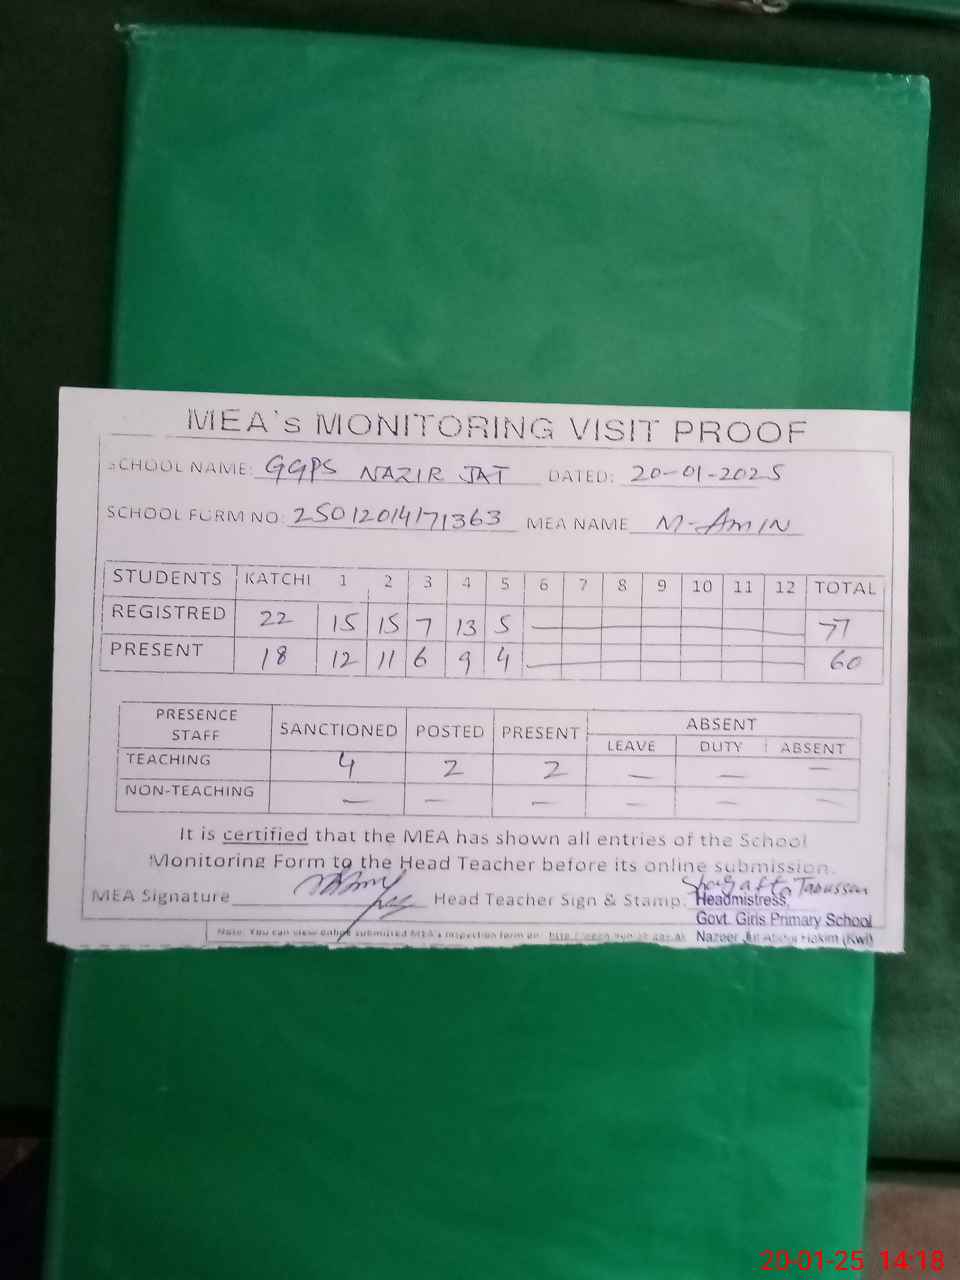 MEA's MONITORING VISIT PROOF
SCHOOL NAME: GGPS NAZIR JAT DATED: 20-01-2025
SCHOOL FORM NO: 25012014171363 MEA NAME M-AMIN
STUDENTS KATCHI 1 2 3 4 5 6 7 8 9 10 11 12 TOTAL
REGISTRED 22 15 15 7 13 5 77
PRESENT 18 12 11 6 9 4 60
PRESENCE STAFF SANCTIONED POSTED PRESENT ABSENT
LEAVE DUTY ABSENT
TEACHING 4 2 2 — — —
NON-TEACHING — — — — — —
It is certified that the MEA has shown all entries of the School
Monitoring Form to the Head Teacher before its online submission.
MEA Signature Head Teacher Sign & Stamp. Shagafta Tabussam
Headmistress,
Govt. Girls Primary School
Note: You can view online submitted MEA's inspection form on: Nazeer Jat Abdul Hakim (Kwl)
20-01-25 14:18